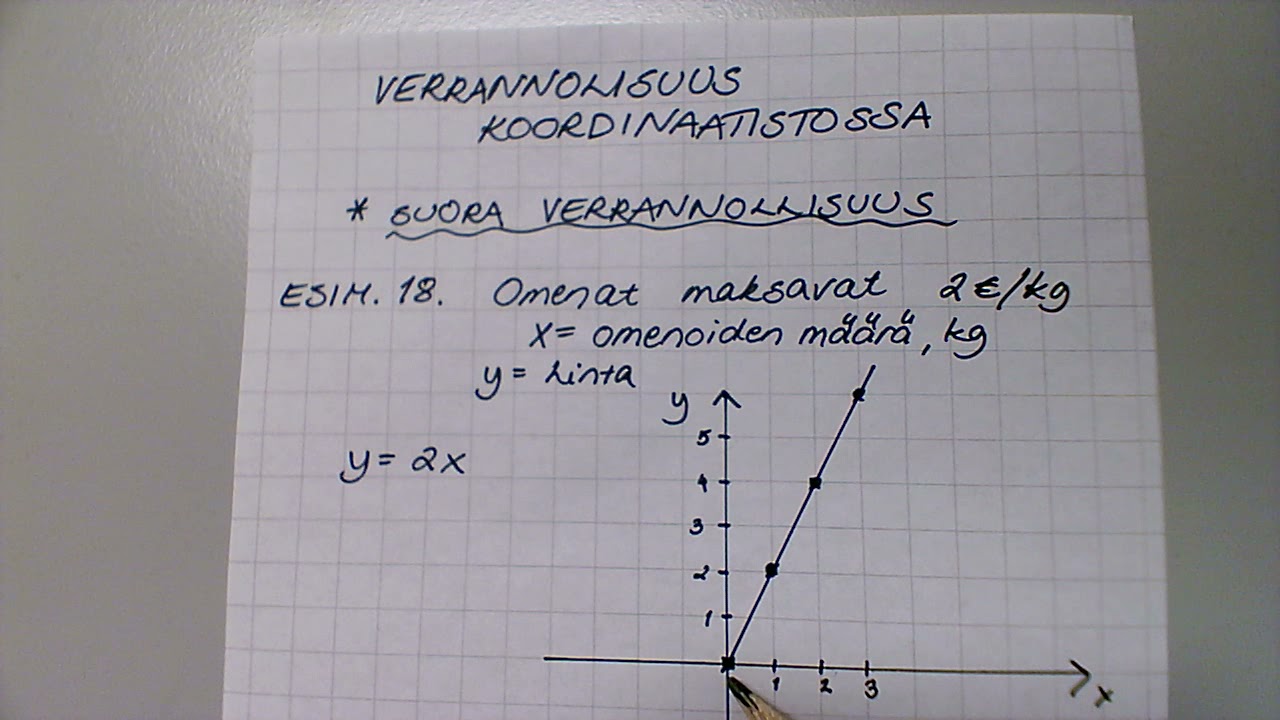 VERRANNOLISUUS
KOORDINAATISTOSSA
* SUORA VERRANNOLLISUUS
ESIM. 18. Omenat maksavat 2€/kg
x = omenoiden määrä, kg
y = hinta
y
5
y = 2x
4
3
2
1
1 2 3
x